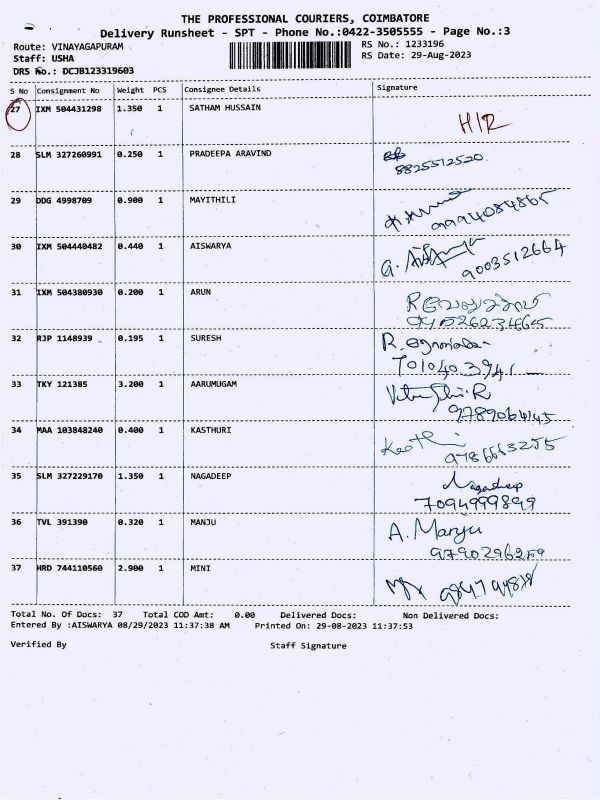 THE PROFESSIONAL COURIERS, COIMBATORE
Delivery Runsheet - SPT - Phone No.:0422-3505555 - Page No.:3
Route: VINAYAGAPURAM RS No.: 1233196
Staff: USHA RS Date: 29-Aug-2023
DRS No.: DCJB123319603
S No Consignment No Weight PCS Consignee Details Signature
27 IXM 504431298 1.350 1 SATHAM HUSSAIN
H/R
28 SLM 327260991 0.250 1 PRADEEPA ARAVIND
8825512520
29 DDG 4998709 0.900 1 MAYITHILI
9994084865
30 IXM 504440482 0.440 1 AISWARYA
G. Aiswarya 9003512664
31 IXM 504380930 0.200 1 ARUN
32 RJP 1148939 0.195 1 SURESH
R.
701040 3941
33 TKY 121385 3.200 1 AARUMUGAM
34 MAA 103848240 0.400 1 KASTHURI
9786663255
35 SLM 327229170 1.350 1 NAGADEEP
Nagadeep
7094999899
36 TVL 391390 0.320 1 MANJU
A. Manju
9790296259
37 HRD 744110560 2.900 1 MINI
Total No. Of Docs: 37 Total COD Amt: 0.00 Delivered Docs: Non Delivered Docs:
Entered By :AISWARYA 08/29/2023 11:37:38 AM Printed On: 29-08-2023 11:37:53
Verified By Staff Signature